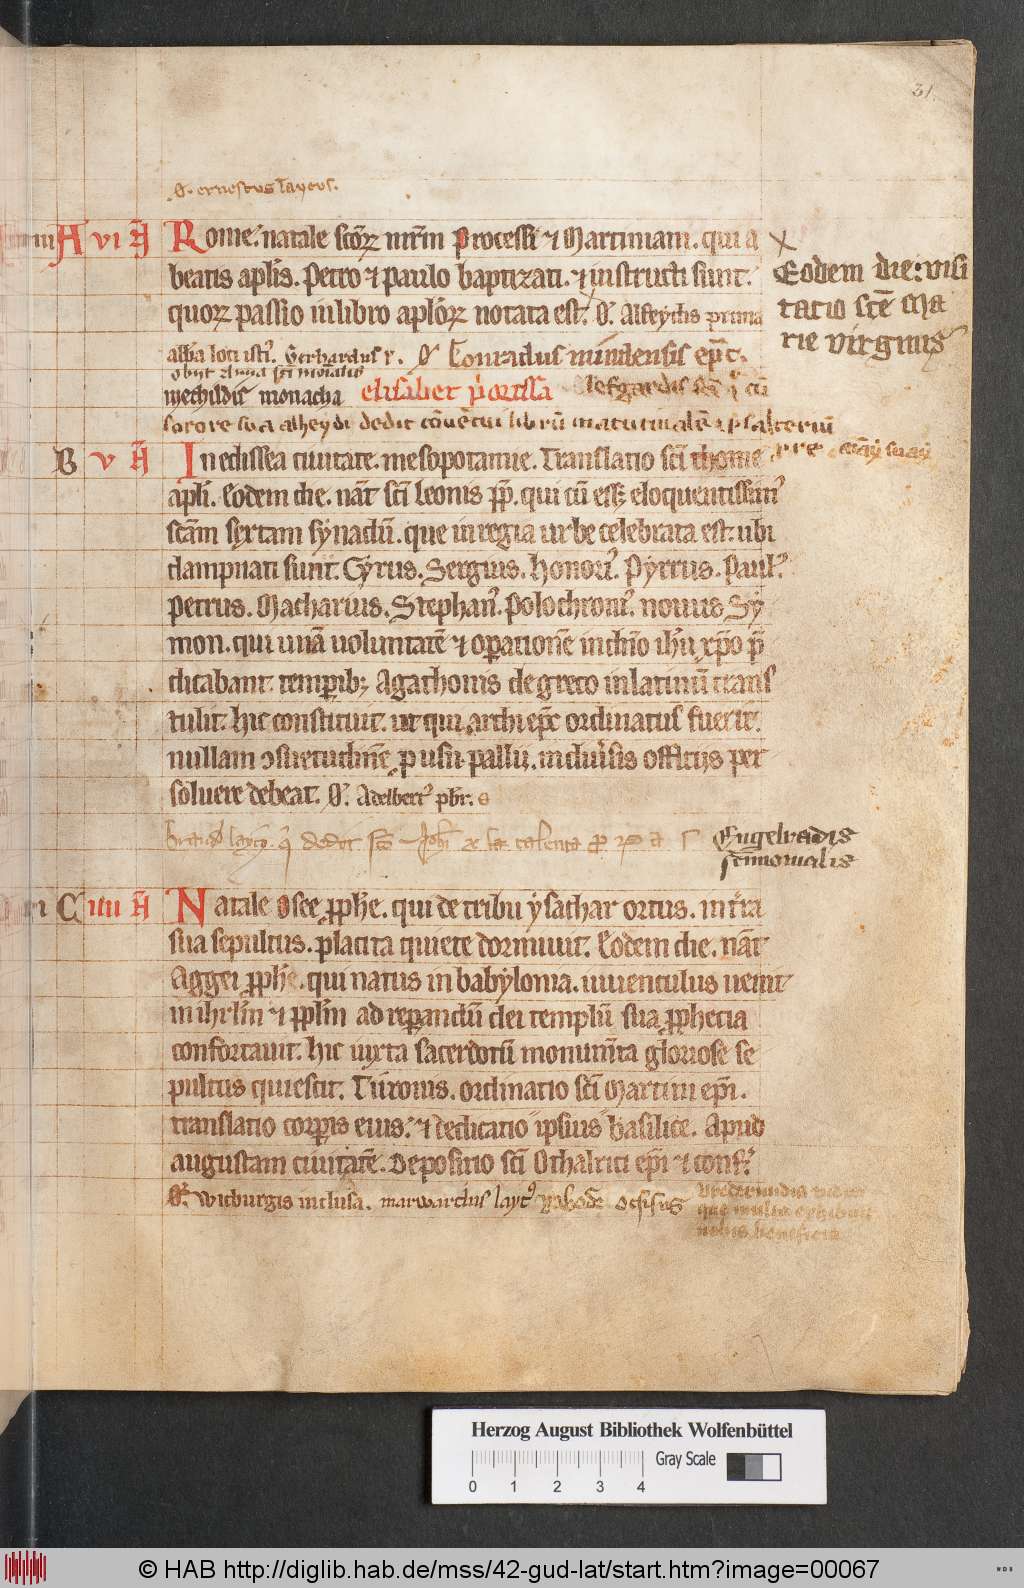 31
O. ernestus laycus.
A vi N Rome. natale sc̄oꝝ mr̄m Processi ⁊ Martiniani. qui a
beatis apl̄is. Petro ⁊ paulo baptizati. ⁊ instructi sunt.
quoꝝ passio in libro apl̄oꝝ notata est. O. Alheydis prima
Eodem die: visi
tatio scē Ma
rie virginis
abb̄a loci isti. Gerhardus . O Conradus mindensis ep̄c.
obiit anna sc̄i monialis
mechildis monacha elisabet p̄orissa
sorore sua alheydi dedit cōuētui librū matutinalē ⁊ psalteriū
B v N In edissea ciuitate. mesopotamie. Translatio sc̄i thome
apl̄i. Eodem die. nāt sc̄i leonis pp̄. qui cū eēt eloquentissim᾽
sc̄am sextam synadū. que in regia urbe celebrata est. ubi
dampnati sunt. Cyrus. Sergius. honori᾽. Pyrrus. Paul᾽.
Petrus. Macharius. Stephan᾽. Polochroni᾽. nouus Sy
mon. qui unā uoluntatē ⁊ oꝑationē in dn̄o ih̄u xp̄o p̄
dicabant. temꝑib; Agathonis de greco in latinū trans
tulit. hic constituit. ut qui archiep̄c ordinatus fuerit.
nullam ↄsuetudinē. ꝓ usu pallii. in diu̓sis officiis per
soluere debeat. O. Adelbert᾽ pb̄r.
Engelradis
sc̄imonialis
C iiii N Natale Osee ꝓph̄e. qui de tribu ysachar ortus. in tr̄ra
sua sepultus. placita quiete dormiuit. Eodem die. nāt
Aggei ꝓph̄e. qui natus in babylonia. iuuenculus uenit
in ihrl̄m ⁊ ppl̄m ad reꝑandū dei templū sua ꝓphecia
confortauit. hic iuxta sacerdotū monum̄ta gloriose se
pultus quiescit. Turonis. ordinatio sc̄i Martini ep̄i.
translatio corꝑis eius. ⁊ dedicatio ipsius basilice. Apud
augustam ciuitatē. Depositio sc̄i Othalrici ep̄i ⁊ conf̄.
O. Wicburgis inclusa. marwardus layc᾽ ocsisus
que multa exhibuit
nobis beneficia
Herzog August Bibliothek Wolfenbüttel
Gray Scale
0 1 2 3 4
© HAB http://diglib.hab.de/mss/42-gud-lat/start.htm?image=00067